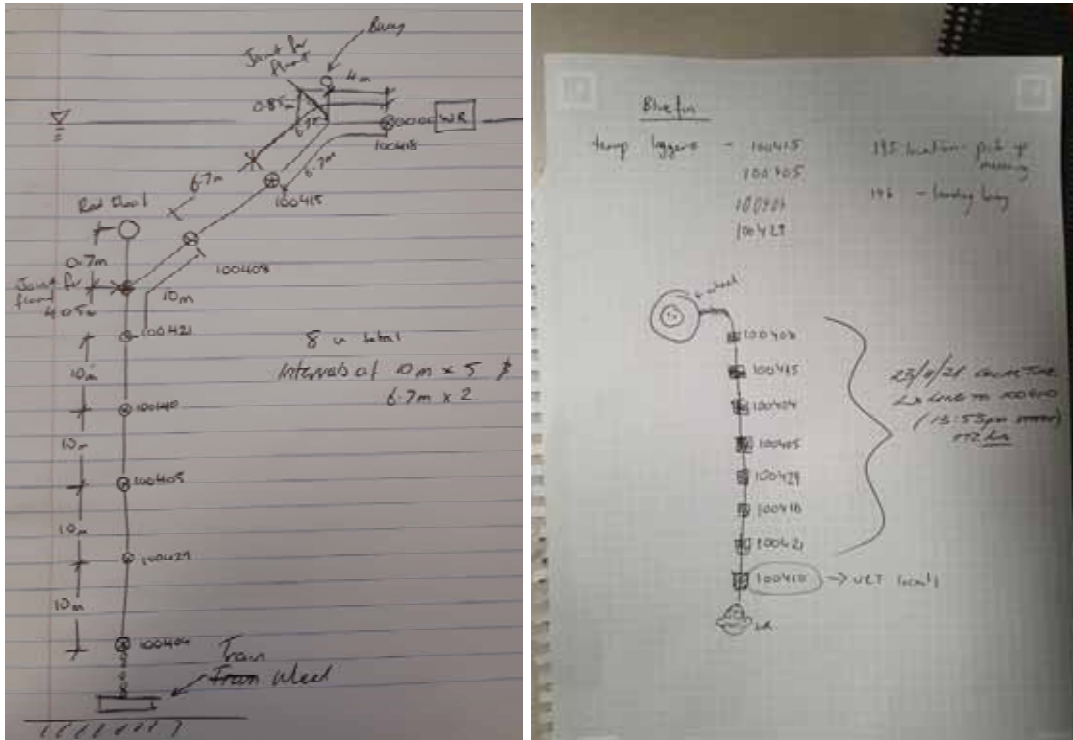 Buoy
Joint for
float
4m
0.85m
WR
100418
6.7m
6.7m
100415
Red float
0.7m
100408
Joint for
float
10m
4.05m
100421
8 u total
10m
Intervals of 10m x 5 &
6.7m x 2
100410
10m
100405
10m
100429
10m
100404
Train
Wheel
Bluefin
temp loggers - 100415
100405
100404
100429
195 location - pick up
mooring
196 - landing buoy
wheel
100408
100415
100404
100405
100429
100418
100421
100410 → UCT local's
23/4/21
LINE TO 100410
(13:53pm